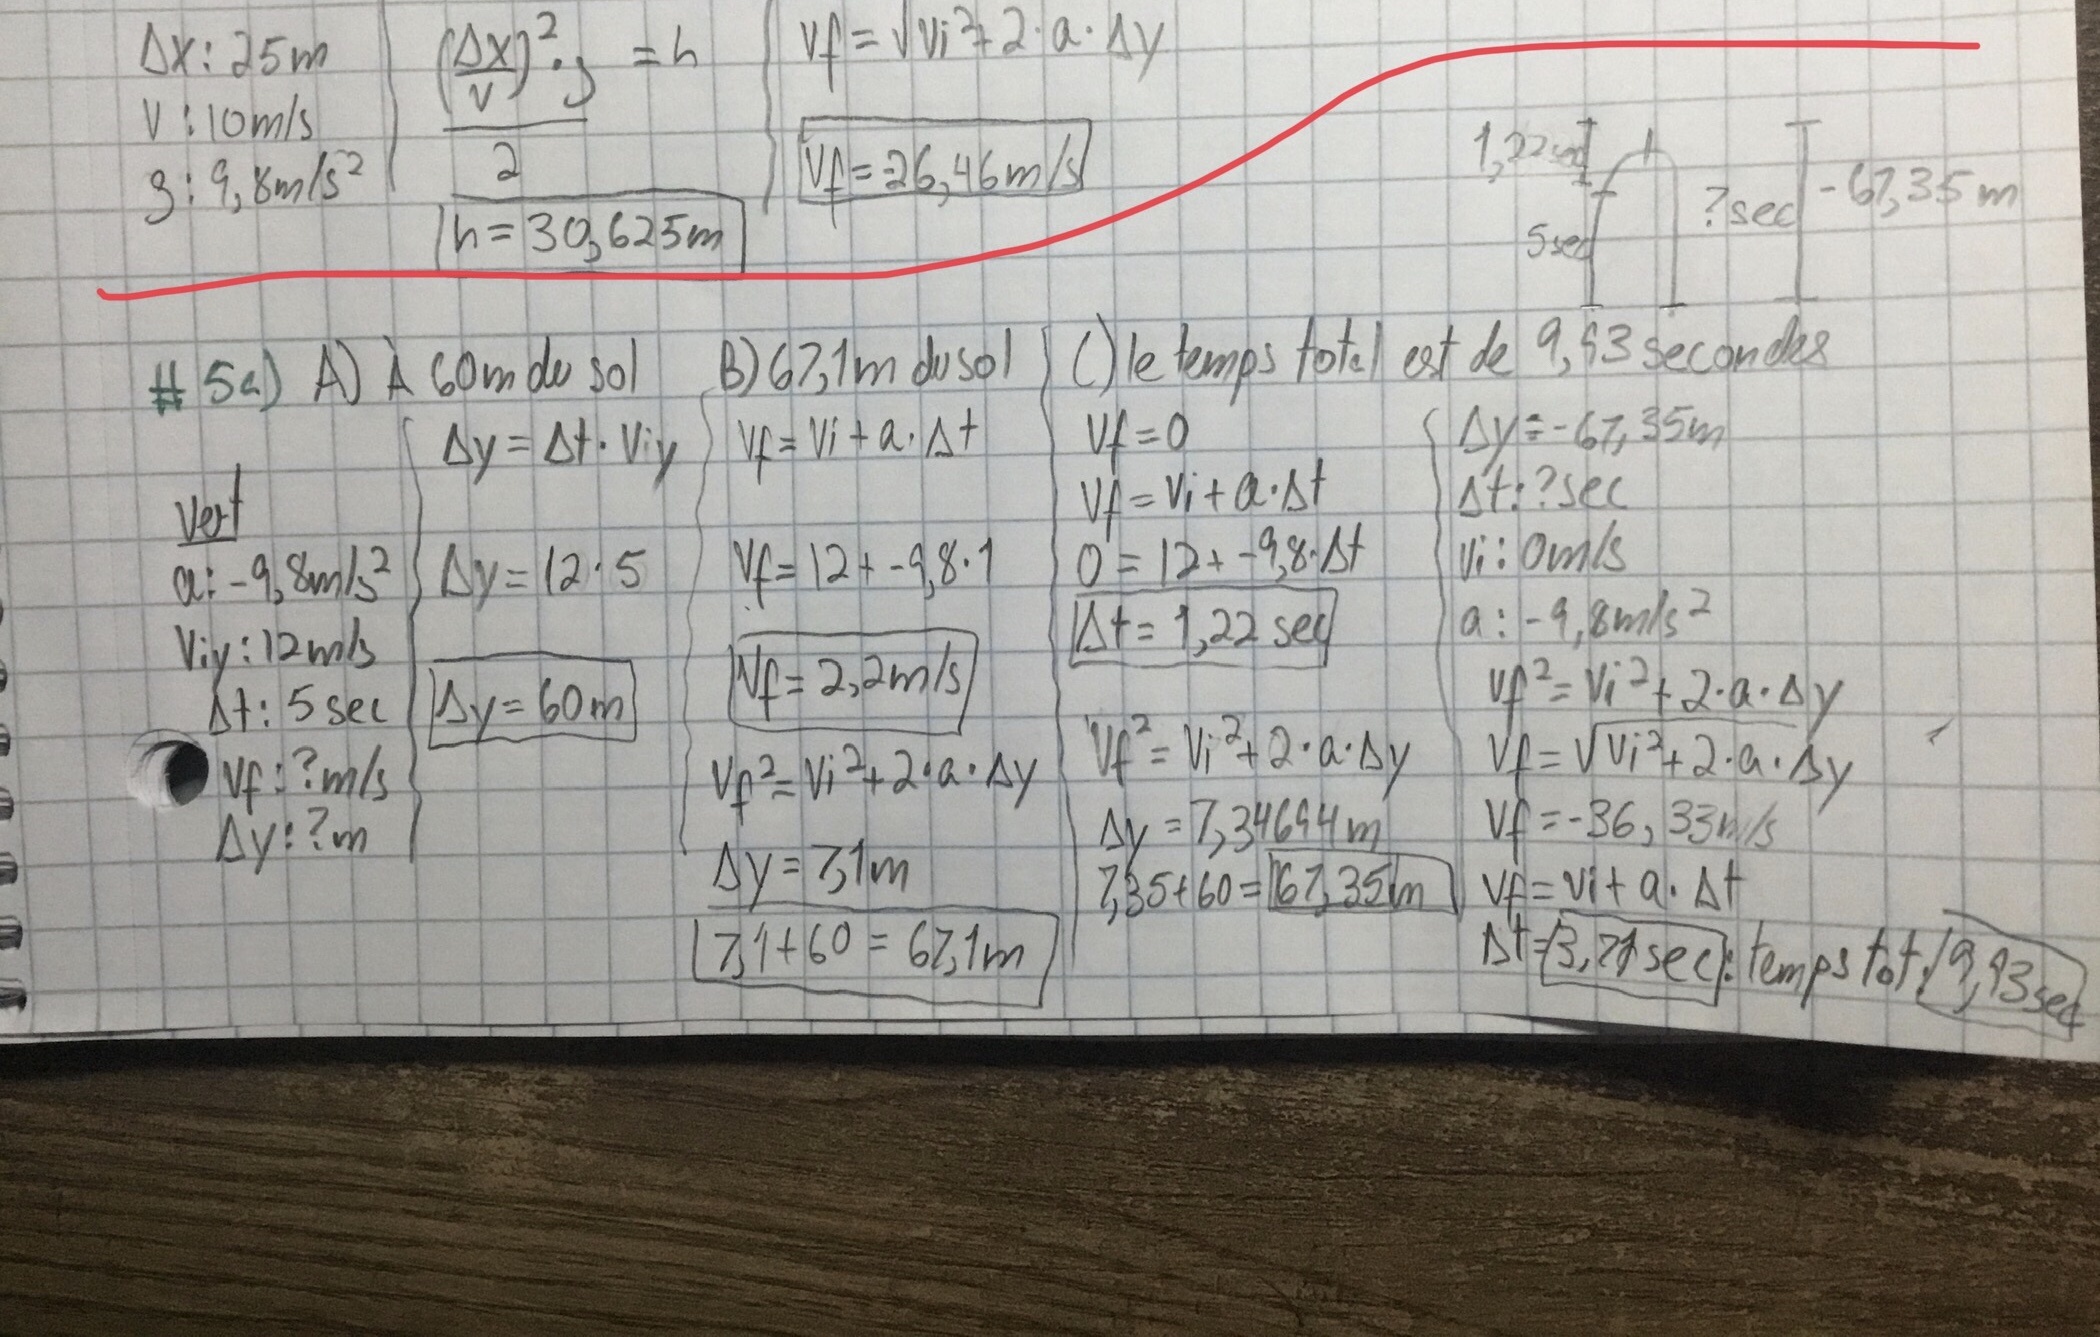 Δx: 25m
V: 10m/s
g: 9,8m/s²
(Δx/V)²·g = h
2
h = 30,625m
Vf = √Vi²+2·a·Δy
Vf = 26,46m/s
1,22sec
5sec
?sec
-67,35m
#5a) A) À 60m du sol
Vert
a: -9,8m/s²
Viy: 12m/s
Δt: 5 sec
Vf: ?m/s
Δy: ?m
Δy = Δt · Viy
Δy = 12·5
Δy = 60m
B) 67,1m du sol
Vf = Vi + a·Δt
Vf = 12 + -9,8·1
Vf = 2,2m/s
Vf² = Vi² + 2·a·Δy
Δy = 7,1m
7,1+60 = 67,1m
C) le temps total est de 9,93 secondes
Vf = 0
Vf = Vi + a·Δt
0 = 12 + -9,8·Δt
Δt = 1,22 sec
Vf² = Vi² + 2·a·Δy
Δy = 7,34694m
7,35+60 = 67,35m
Δy = -67,35m
Δt: ?sec
Vi: 0m/s
a: -9,8m/s²
Vf² = Vi² + 2·a·Δy
Vf = √Vi²+2·a·Δy
Vf = -36,33m/s
Vf = Vi + a·Δt
Δt = 3,71sec : temps tot: 9,93sec